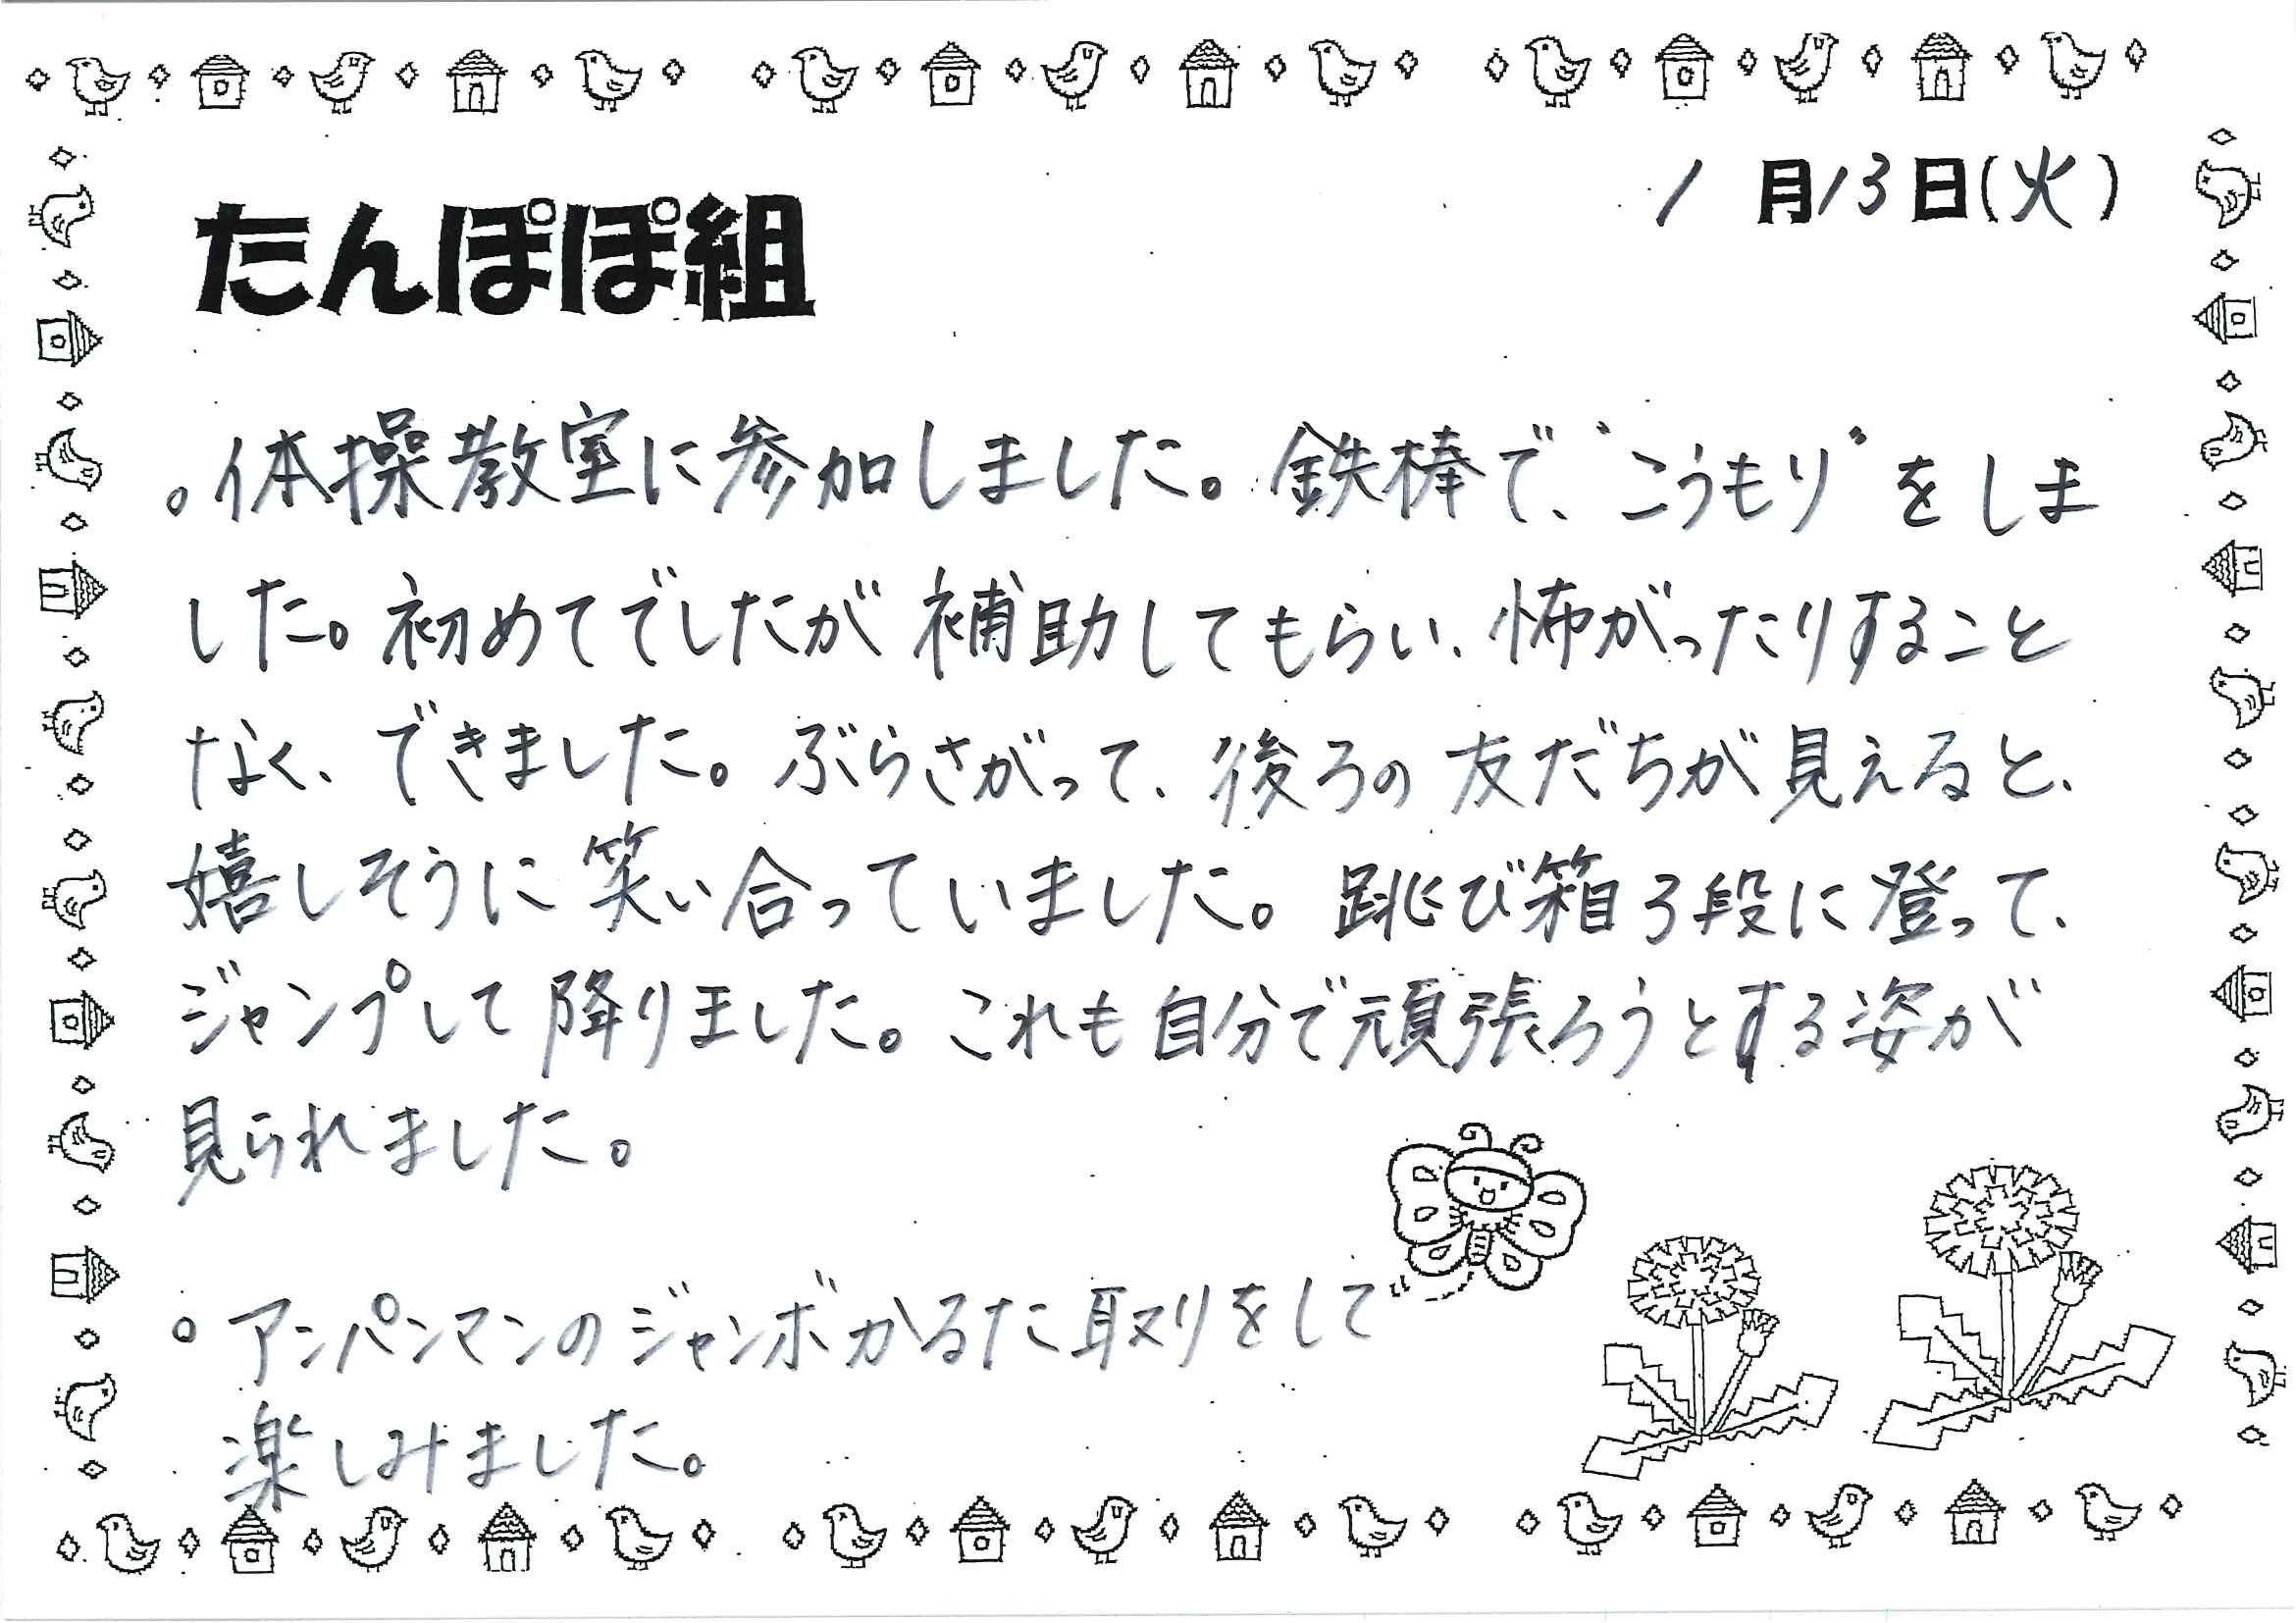 1月13日(火)
たんぽぽ組
。体操教室に参加しました。鉄棒で、"こうもり"をしま
した。初めてでしたが補助してもらい、怖がったりすること
なく、できました。ぶらさがって、後ろの友だちが見えると、
嬉しそうに笑い合っていました。跳び箱3段に登って、
ジャンプして降りました。これも自分で頑張ろうとする姿が
見られました。
。アンパンマンのジャンボかるた取りをして
楽しみました。